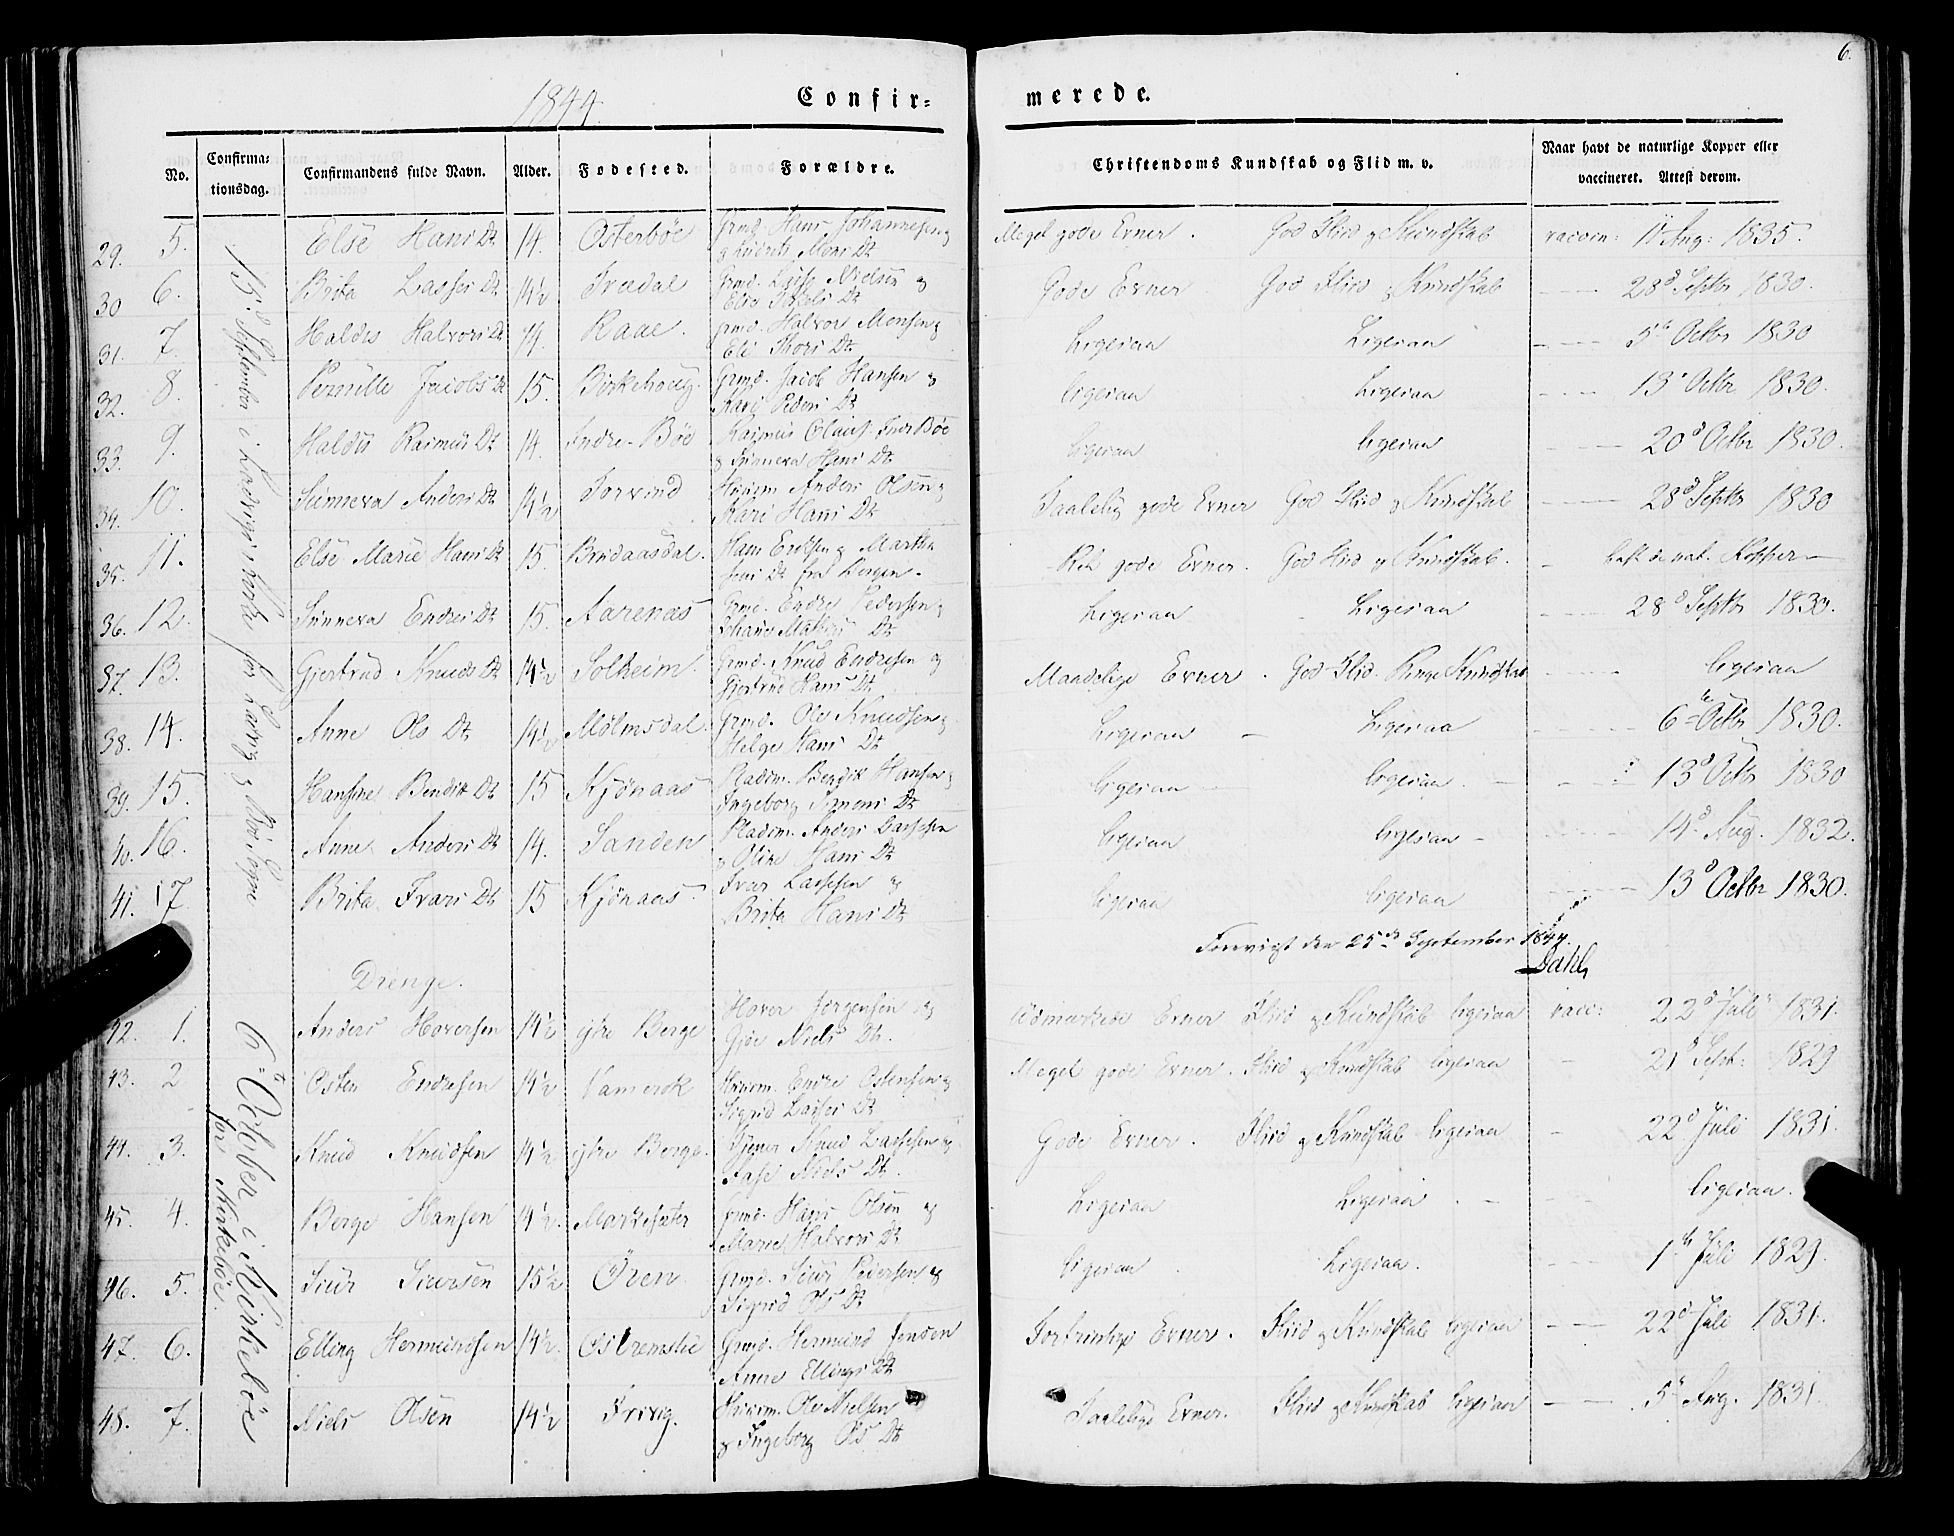 6.
1844.
Confir=
merede.
No.
Confirma=
tionsdag.
Confirmandens fulde Navn.
Alder.
Fodested.
Forældre.
Christendoms Kundskab og Flid m. v.
Naar havt de naturlige Kopper eller
vaccineret. Attest derom.
15d September i Ladvigs Kirke for Ladvig og Böe Sogne
29. 5. Else Hans Dt 14. Osterböe Grmd. Hans Johannesen
Mons Dt Meget gode Evner. God Flid og Kundskab vaccin: 11 Aug: 1835.
30 6. Brita Lasses Dt 14½ Tredal Grmd. Lasse Nielsen og
Dt Gode Evner God Flid og Kundskab 28d Septbr 1830.
31. 7. Haldis Halvors Dt 14. Raae. Grmd. Halvor Monsen
Eli Thors Dt Ligesaa Ligesaa 5te Octbr 1830
32. 8. Pernille Jacobs Dt 15. Birkehoug. Grmd. Jacob Hansen og
Kari Peders Dt ligesaa Ligesaa 13d Octbr 1830.
33. 9. Haldis Rasmus Dt 14. Indre-Böe Rasmus Olaus. Indr Böe
og Sünneva Hans Dt ligesaa ligesaa 20d Octbr 1830.
34. 10. Sünneva Anders Dt 14½ Torvund Huusm. Anders Olsen og
Kari Hans Dt Taalelig gode Evner God Flid og Kundskab 28d Septbr 1830
35. 11. Else Marie Hans Dt 15. Hans Eriksen og Martha
Dt fra Bergen. Ret gode Evner. God Flid og Kundskab. havt de nat. Kopper
36. 12. Sünneva Endres Dt 15. Aarenæs Grmd. Endre Pedersen og
Dt Ligesaa Ligesaa 28d Septbr 1830.
37. 13. Gjertrud Knuds Dt 14½ Solheim. Grmd. Knud Endresen og
Gjertrud Hans Dt Maadelige Evner. God Flid. Ringe Kundskab ligesaa
38. 14. Anne Ols Dt 14½ Mölmsdal Grmd. Ole Knudsen og
Helge Hans Dt Ligesaa Ligesaa 6te Octbr 1830.
39. 15. Hansine Bendik Dt 15 Kjönaas Pladsm. Bendik Hansen og
Ingeborg Simens Dt ligesaa ligesaa. 13d Octbr 1830
40. 16. Anne Anders Dt 14. Sanden Pladsm. Anders Lassesen
og Oline Hans Dt ligesaa ligesaa 14d Aug. 1832.
41. 17 Brita Ivars Dt 15 Kjönaas Ivar Lassesen og
Brita Hans Dt ligesaa ligesaa 13d Octbr 1830.
Foreviist den 25de September 1844.
Dahl
Drenge.
6te October i Kirkeböe
for Kirkeböe.
42. 1. Anders Hoversen 14½ ytre Berge Hover Jorgensen og
Niels Dtr. Udmærkede Evner Flid og Kundskab ligesaa vacc: 22d Juli 1831.
43. 2 Osten Endresen 14½ Vamerak Huusm. Endre Ostensen og
Sigrid Lasses Dt Meget gode Evner. Flid og Kundskab ligesaa 21d Sept: 1829
44. 3. Knud Knudsen 14½ ytre Berge. Knud Lassesen og
Niels Dt. Gode Evner. Flid og Kundskab ligesaa 22d Juli 1831.
45. 4. Berge Hansen 14½. Markesæter Grmd. Hans Olsen og
Marie Halvors Dt Ligesaa Ligesaa. ligesaa.
46. 5. Siur Siursen 15½ Ören Grmd. Siur Pedersen og
Sigrid Ols Dt ligesaa Ligesaa. 1te Juli 1829.
47. 6. Elling Hermundsen 14½. Ostremslie Grmd. Hermund Jensen
Anne Ellings Dt Fortrinlige Evner. Flid og Kundskab ligesaa 22d Juli 1831.
48. 7. Niels Olsen 14½ Huusm. Ole Nielsen
og Ingeborg Ols Dt Taalelige Evner. Flid og Kundskab ligesaa 5te Aug. 1831